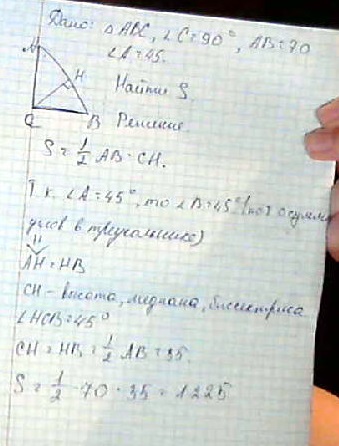 Дано: △ ABC, ∠C=90°, AB=70
∠A=45.
A
H
C
B
Найти: S.
Решение.
S = 1/2 AB · CH.
Т.к. ∠A=45°, то ∠B=45° (по т. о сумме
углов в треугольнике)
H
AH = HB
CH - высота, медиана, биссектриса
∠HCB=45°
CH = HB = 1/2 AB = 35.
S = 1/2 · 70 · 35 = 1225